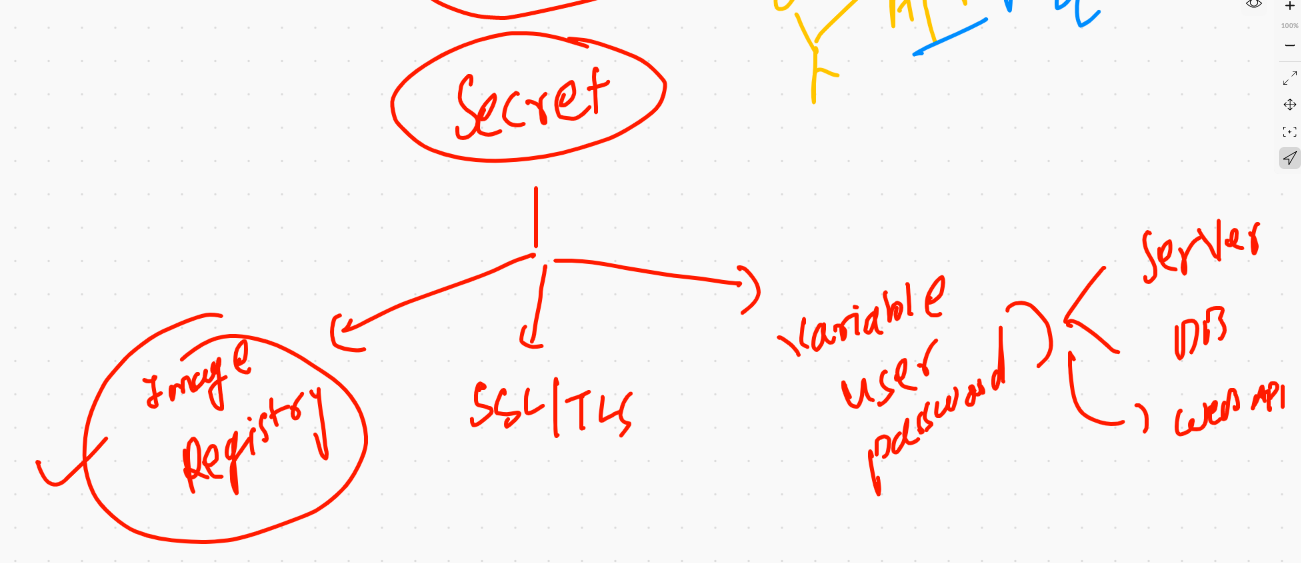 100%
Secret
Image
Registry
SSL/TLS
Variable
user
password
Server
DB
Web API